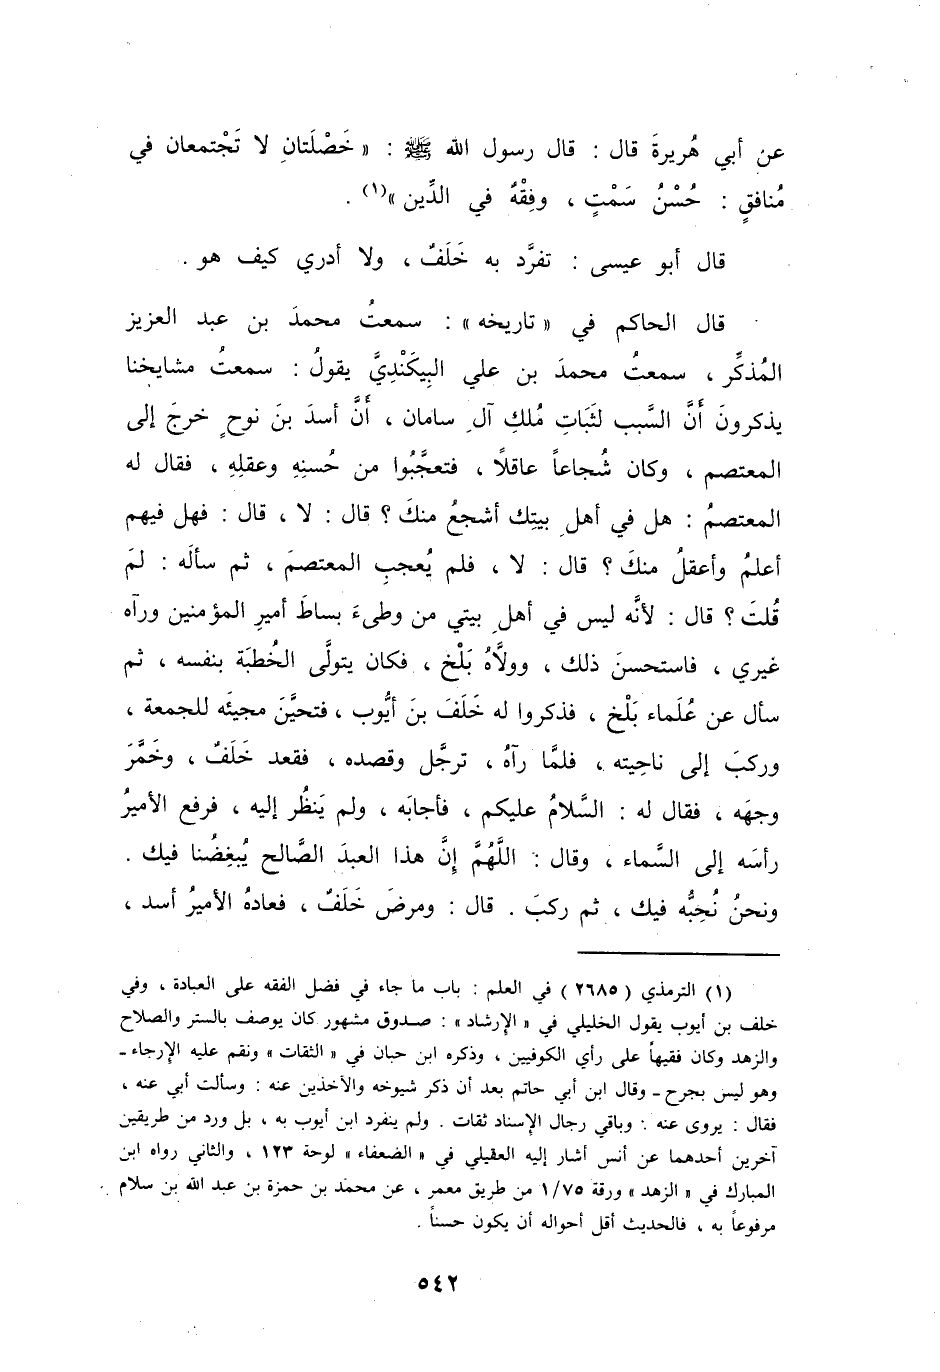 عن أبي هُريرةَ قال : قال رسول الله ﷺ : « خَصْلَتانِ لا تَجْتمعان في
مُنافقٍ : حُسْنُ سَمْتٍ ، وفِقْهٌ في الدِّين »(١) .
قال أبو عيسى : تفرَّد به خَلَفٌ ، ولا أدري كيف هو .
قال الحاكم في « تاريخه » : سمعتُ محمدَ بن عبد العزيز
المُذكِّر ، سمعتُ محمدَ بن علي البِيكَنْديَّ يقولُ : سمعتُ مشايخنا
يذكرونَ أَنَّ السَّبب لثَباتِ مُلكِ آلِ سامان ، أَنَّ أسدَ بنَ نوحٍ خرجَ إلى
المعتصم ، وكان شُجاعاً عاقلاً ، فتعجَّبُوا من حُسنِهِ وعقلِهِ ، فقال له
المعتصمُ : هل في أهلِ بيتِك أشجعُ منكَ ؟ قال : لا ، قال : فهل فيهم
أعلمُ وأعقلُ منكَ ؟ قال : لا ، فلم يُعجبِ المعتصمَ ، ثم سألَه : لمَ
قُلتَ ؟ قال : لأنَّه ليس في أهلِ بيتي من وطىءَ بساطَ أميرِ المؤمنين ورآه
غيري ، فاستحسنَ ذلك ، وولَّاهُ بَلْخ ، فكان يتولَّى الخُطبَة بنفسه ، ثم
سأل عن عُلَماء بَلْخ ، فذكروا له خَلَفَ بنَ أيُّوب ، فتحيَّنَ مجيئَه للجمعة ،
وركبَ إلى ناحِيته ، فلمَّا رآهُ ، ترجَّل وقصده ، فقعد خَلَفٌ ، وخَمَّرَ
وجهَه ، فقال له : السَّلامُ عليكم ، فأجابَه ، ولم يَنظُر إليه ، فرفع الأميرُ
رأسَه إلى السَّماء ، وقال : اللَّهُمَّ إِنَّ هذا العبدَ الصَّالح يُبغِضُنا فيك .
ونحنُ نُحِبُّه فيك ، ثم ركبَ . قال : ومرضَ خَلَفٌ ، فعادهُ الأميرُ أسد ،
(١) الترمذي ( ٢٦٨٥ ) في العلم : باب ما جاء في فضل الفقه على العبادة ، وفي
خلف بن أيوب يقول الخليلي في « الإرشاد » : صدوق مشهور كان يوصف بالستر والصلاح
والزهد وكان فقيهاً على رأي الكوفيين ، وذكره ابن حبان في « الثقات » ونقم عليه الإرجاء ـ
وهو ليس بجرح ـ وقال ابن أبي حاتم بعد أن ذكر شيوخه والآخذين عنه : وسألت أبي عنه ،
فقال : يروى عنه . وباقي رجال الإسناد ثقات . ولم ينفرد ابن أيوب به ، بل ورد من طريقين
آخرين أحدهما عن أنس أشار إليه العقيلي في « الضعفاء » لوحة ١٢٣ ، والثاني رواه ابن
المبارك في « الزهد » ورقة ١/٧٥ من طريق معمر ، عن محمد بن حمزة بن عبد الله بن سلام
مرفوعاً به ، فالحديث أقل أحواله أن يكون حسناً .
٥٤٢